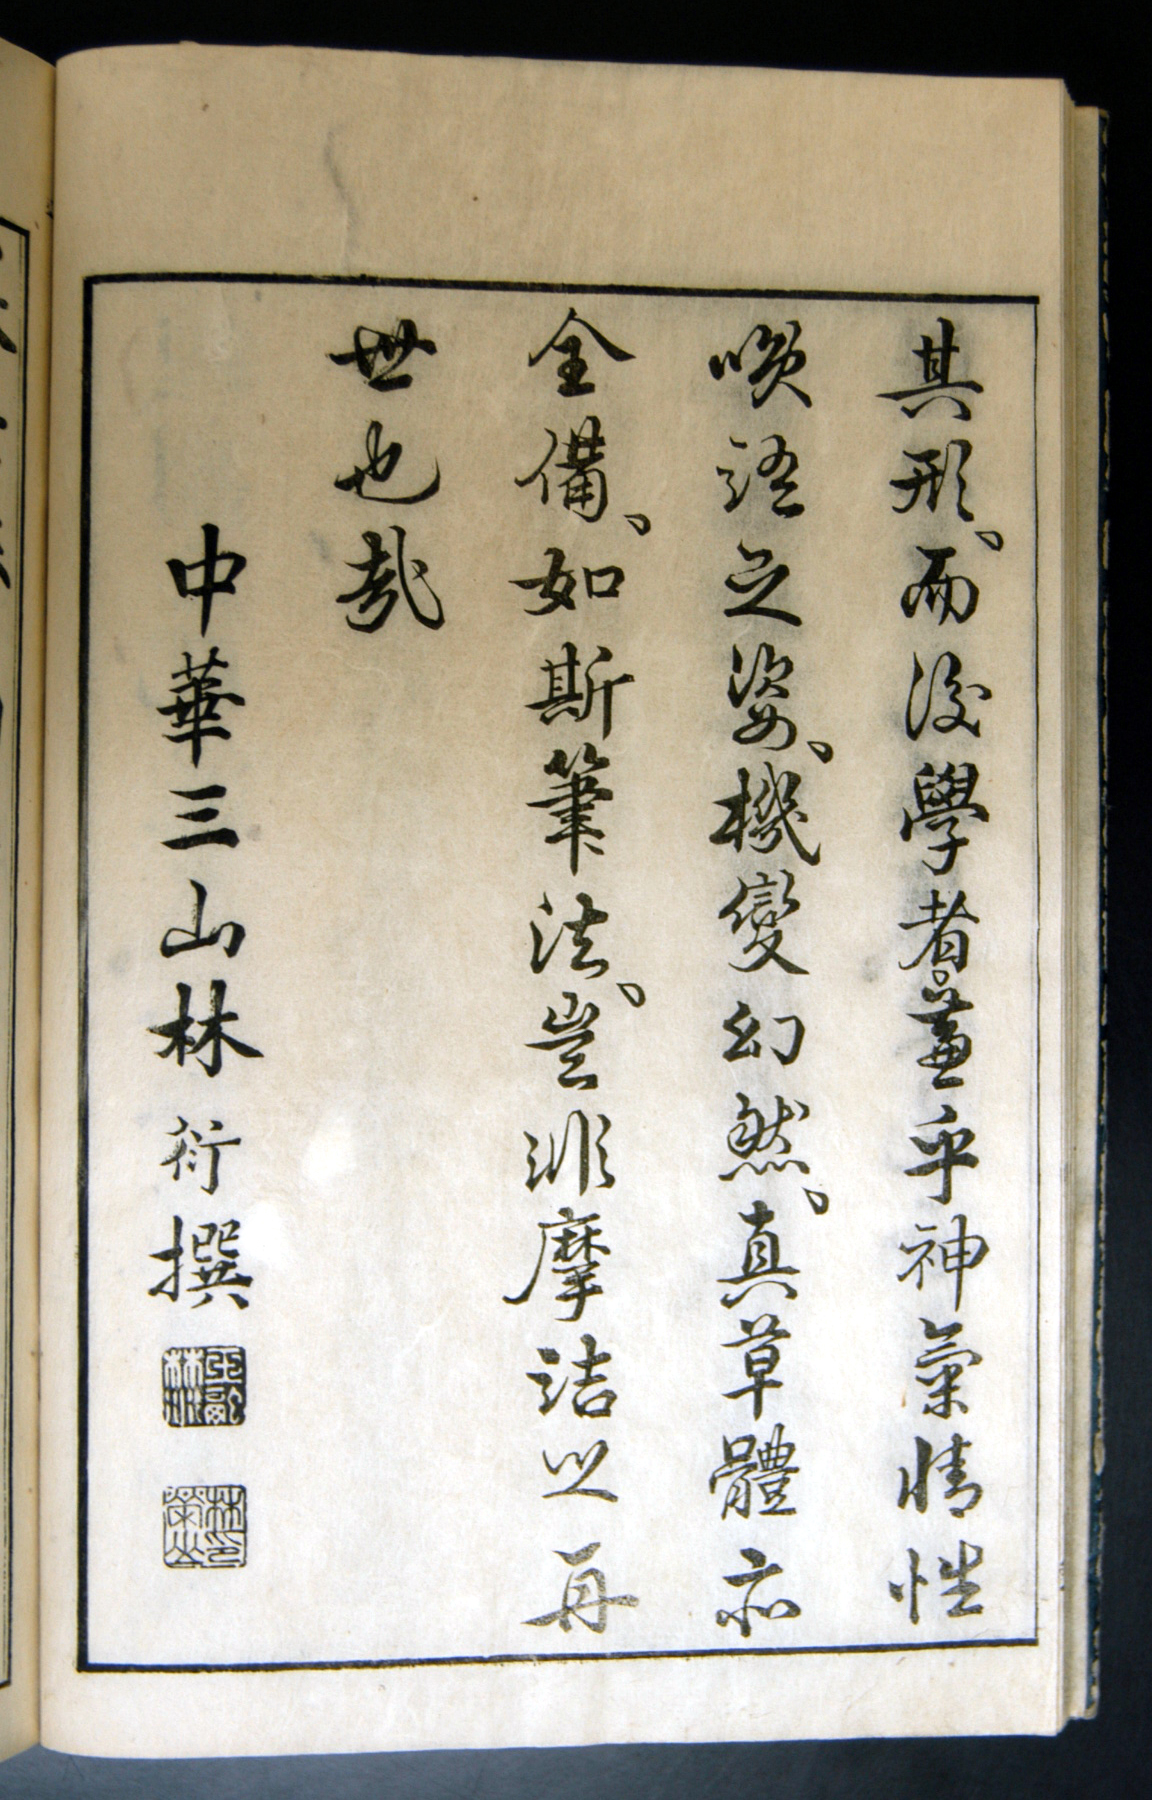 其形、而後學者兼乎神氣情性
喚證之姿、機變幻然、真草體亦
全備、如斯筆法、豈非摩詰之再
世也哉
中華三山林衍撰